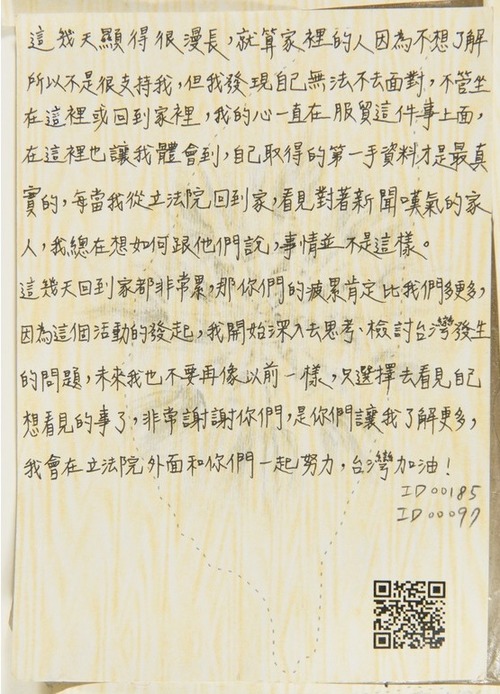 這幾天顯得很漫長，就算家裡的人因為不想了解
所以不是很支持我，但我發現自己無法不去面對，不管坐
在這裡或回到家裡，我的心一直在服貿這件事上面，
在這裡也讓我體會到，自己取得的第一手資料才是最真
實的，每當我從立法院回到家，看見對著新聞嘆氣的家
人，我總在想如何跟他們說，事情並不是這樣。
這幾天回到家都非常累，那你們的疲累肯定比我們多更多，
因為這個活動的發起，我開始深入去思考、檢討台灣發生
的問題，未來我也不要再像以前一樣，只選擇去看見自己
想看見的事了，非常謝謝你們，是你們讓我了解更多，
我會在立法院外面和你們一起努力，台灣加油！
ID00185
ID00097